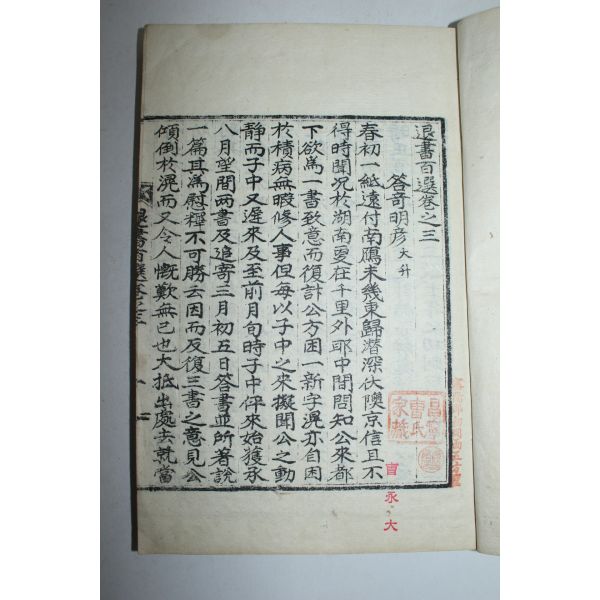 退書百選卷之三
答奇明彦 大升
春初一紙遠付南鴈未幾東歸潛深伏隩京信且不
得時聞况於湖南夐在千里外耶中間聞知公來都
下欲爲一書致意而復計公方困一新字滉亦自困
於積病無暇修人事但每以子中之來擬聞公之動
靜而子中又遲來及至前月旬時子中伻來始獲承
八月望間兩書及追寄三月初五日答書並所著說
一篇其爲慰釋不可勝云因而反復三書之意見公
傾倒於滉而又令人慨歎無已也大抵出處去就當
退書百選卷之三
昌寧
曺氏
家藏
曺永大